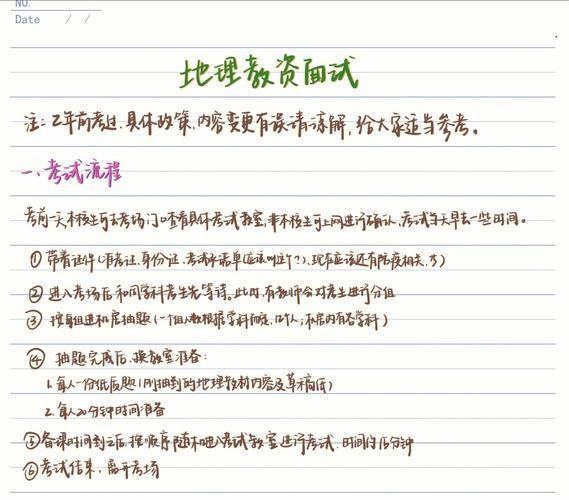 NO.
Date / /
地理教资面试
注：2年前考过，具体政策，内容变更有误请谅解，给大家适当参考。
一、考试流程
考前一天本校生可去考场门口查看具体考试教室，非本校生可上网进行确认，考试当天早去一些时间。
① 带着证件（准考证、身份证、考试承诺单（应该叫这个？），现在应该还有防疫相关
② 进入考场后和同学科考生先等待。此时，有教师会对考生进行分组
③ 按每组进机房抽题（一个组人数根据学科而定，机房内有各学科）
④ 抽题完成后，换教室准备：
1. 每人一份纸质题（附抽到的地理教材内容及草稿纸）
2. 每人20分钟时间准备
⑤ 备课时间到之后，按顺序随机进入考试教室进行考试，时间约15分钟
⑥ 考试结束，离开考场